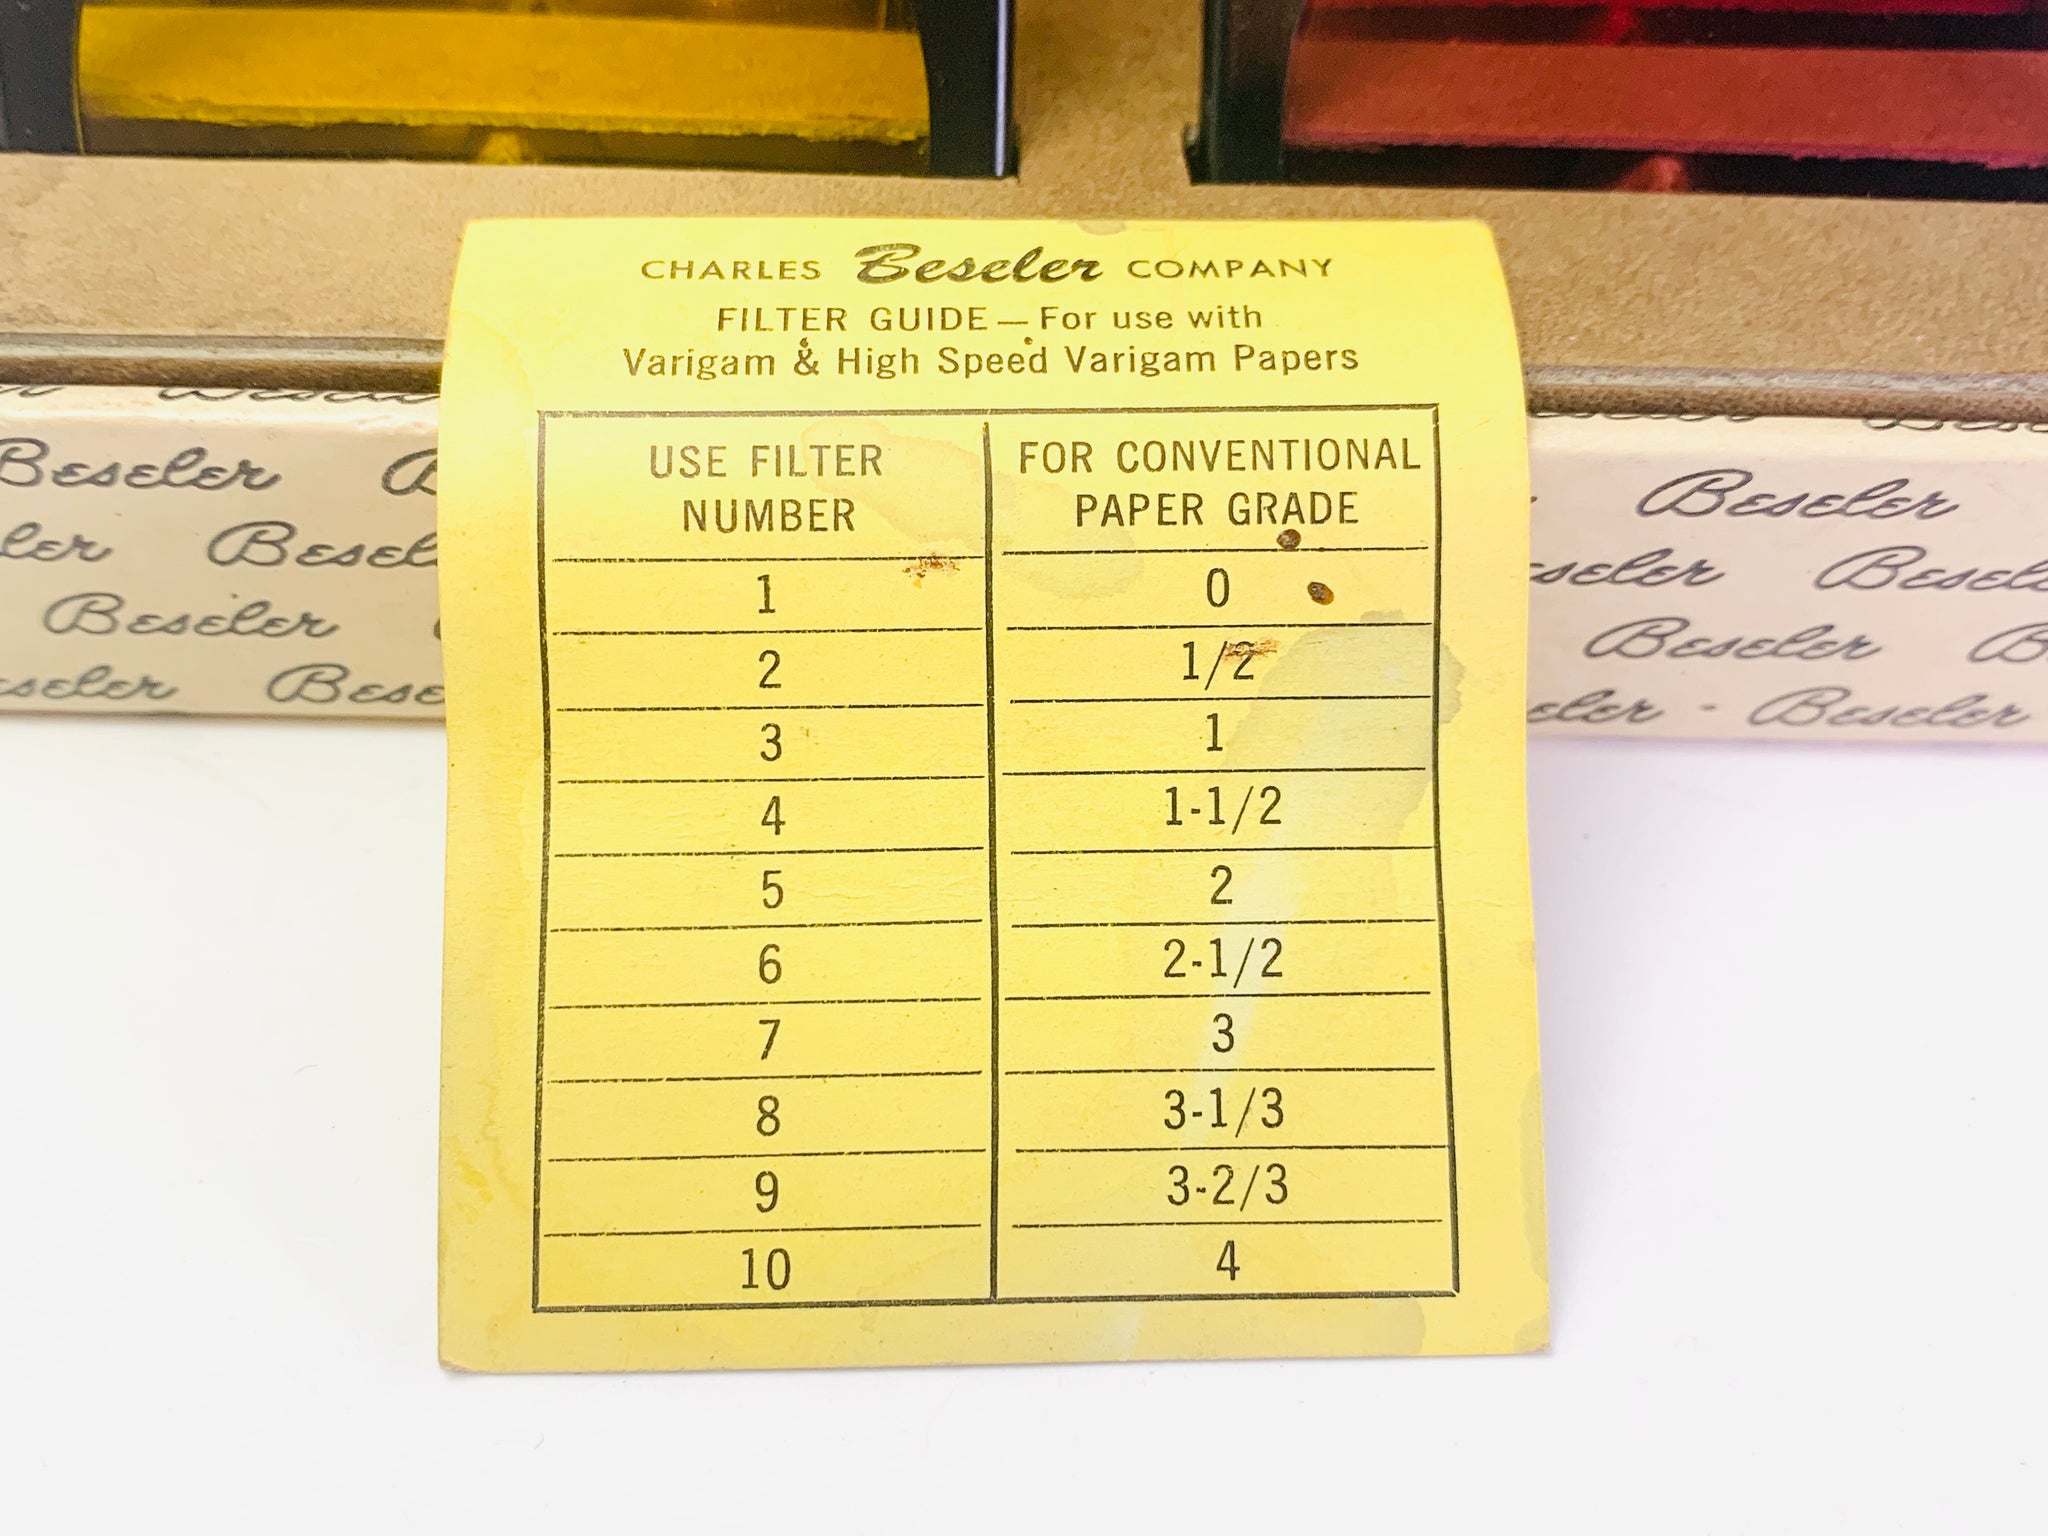 CHARLES Beseler COMPANY
FILTER GUIDE — For use with
Varigam & High Speed Varigam Papers
USE FILTER NUMBER
FOR CONVENTIONAL PAPER GRADE
1 0
2 1/2
3 1
4 1-1/2
5 2
6 2-1/2
7 3
8 3-1/3
9 3-2/3
10 4
Beseler
Beseler
Beseler
Beseler
Beseler
Beseler
Beseler